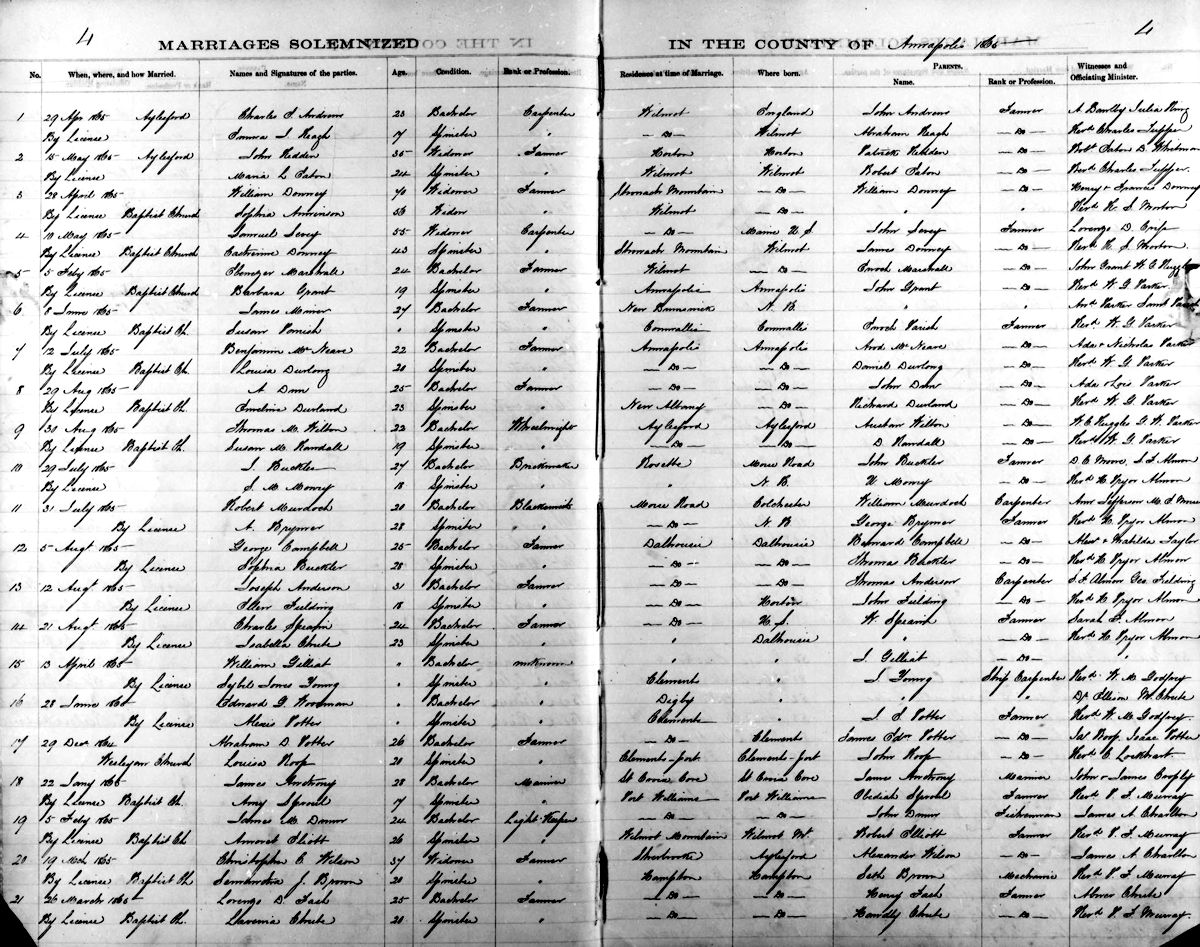 4
4
MARRIAGES SOLEMNIZED IN THE COUNTY OF Annapolis 1865
PARENTS.
No. When, where, and how Married. Names and Signatures of the parties. Age. Condition. Rank or Profession. Residence at time of Marriage. Where born. Name. Rank or Profession. Witnesses and Officiating Minister.
1 29 Apr 1865 Aylesford Charles S. Andrews 23 Bachelor Carpenter Wilmot England John Andrews Farmer
By License 17 Spinster " — Do — Wilmot Abraham — Do — Revd Charles Tupper
2 15 May 1865 Aylesford John Redden 35 Widower Farmer Horton Horton Patrick Redden — Do —
By License Maria L Eaton 24 Spinster " Wilmot Wilmot Robert Eaton — Do — Revd Charles Tupper
3 28 April 1865 William Downey 70 Widower Farmer Stronach Mountain — Do — William Downey — Do — Henry & Francis Downey
By License Baptist Church Sophia 53 Widow " Wilmot — Do — " " Revd Morton
4 10 May 1865 Samuel Sevey 55 Widower Carpenter — Do — Maine U S John Sevey Farmer Lorenzo D.
By License Baptist Church Catherine Downey 43 Spinster " Stronach Mountain Wilmot James Downey — Do — Revd Morton
5 5 Feby 1865 Ebenezer Marshall 24 Bachelor Farmer Wilmot — Do — Enoch Marshall — Do — John Grant
By License Baptist Church Barbara Grant 19 Spinster " Annapolis Annapolis John Grant — Do — Revd W. G. Parker
6 8 June 1865 James 27 Bachelor Farmer New Brunswick N. B. " " Parker
By License Baptist Ch. Susan Parish " Spinster " Cornwallis Cornwallis Enoch Parish Farmer Revd W. G. Parker
7 12 July 1865 Benjamin Mc Neare 22 Bachelor Farmer Annapolis Annapolis Mc Neare — Do — Ada & Nicholas Parker
By License Baptist Ch. Louisa Durlong 20 Spinster " — Do — — Do — Daniel Durlong — Do — Revd W. G. Parker
8 29 Aug 1865 A. Dun 25 Bachelor Farmer — Do — — Do — John Dun — Do — Ada & Lois Parker
By License Baptist Ch. Emelina Durland 23 Spinster " New Albany — Do — Richard Durland — Do — Revd W. G. Parker
9 30 Aug 1865 Thomas M. Wilton 22 Bachelor Wheelwright Aylesford Aylesford Wilton — Do — W. C Ruggles G. W. Parker
By License Baptist Ch. Susan M. Randall 19 Spinster " — Do — — Do — D. Randall — Do — Revd W. G. Parker
10 29 July 1865 J. Buckler 27 Bachelor Brickmaker Rosette Morse Road John Buckler Farmer D. C Moore, S. F Almon
By License 18 Spinster " " N. B. — Do — Revd H. Pryor Almon
11 31 July 1865 Robert Murdoch 20 Bachelor Blacksmith Morse Road Colchester William Murdoch Carpenter
By License A. Brymer 28 Spinster " — Do — N. B George Brymer Farmer Revd H. Pryor Almon
12 5 Augt 1865 George Campbell 25 Bachelor Farmer Dalhousie Dalhousie Campbell — Do — Alexr & Matilda Taylor
By License Sophia Buckler 28 Spinster " — Do — — Do — Thomas Buckler — Do — Revd H. Pryor Almon
13 12 Augt 1865 Joseph Anderson 31 Bachelor Farmer — Do — — Do — Thomas Anderson Carpenter S F Almon Geo. Fielding
By License Ellen Fielding 18 Spinster " — Do — Horton John Fielding — Do — Revd H. Pryor Almon
14 21 Augt 1865 Charles Spearin 24 Bachelor Farmer — Do — U. S. W. Spearin Farmer Sarah F. Almon
By License Isabella Chute 23 Spinster " " Dalhousie " — Do — Revd H. Pryor Almon
15 13 April 1865 William Gilliat " Bachelor unknown " " J. Gilliat — Do — "
By License Sybil Jones Young " Spinster " Clement " J. Young Ship Carpenter Revd W. M. Godfrey
16 28 June 1865 Edward G. Woodman " Bachelor " Digby " " " Dr Ellison W. Chute
By License Alexis Potter " Spinster " Clements " J. S. Potter Farmer Revd W. M. Godfrey
17 29 Decr 1864 Abraham D Potter 26 Bachelor Farmer — Do — Clement James Edw. Potter — Do — Roop Isaac Potter
Wesleyan Church Louisa Roop 20 Spinster " Clements-port Clements-port John Roop — Do — Revd C. Lockhart
18 22 Jany 1865 James Anthony 28 Bachelor Mariner St Croix Cove St Croix Cove James Anthony Mariner John & James
By License Baptist Ch. Amy Sproul 17 Spinster " Port Williams Port Williams Obediah Sproul Farmer Revd P. F. Murray
19 5 Feby 1865 James M. 24 Bachelor Light Keeper — Do — — Do — John Fisherman James A. Charlton
By License Baptist Ch Elliott 26 Spinster " Wilmot Mountain Wilmot Mt. Robert Elliott Farmer Revd P. F. Murray
20 19 Mch 1865 Christopher C. Wilson 37 Widower Farmer Sherbrooke Aylesford Alexander Wilson — Do — James A. Charlton
By License Baptist Ch Samantha J. Brown 20 Spinster " Hampton Hampton Seth Brown Mechanic Revd P. F. Murray
21 26 March 1865 Lorenzo D. Fash 25 Bachelor Farmer — Do — — Do — Henry Fash Farmer Abner Chute
By License Baptist Ch. Lavenia Chute 20 Spinster " — Do — — Do — Handly Chute — Do — Revd P. F. Murray.